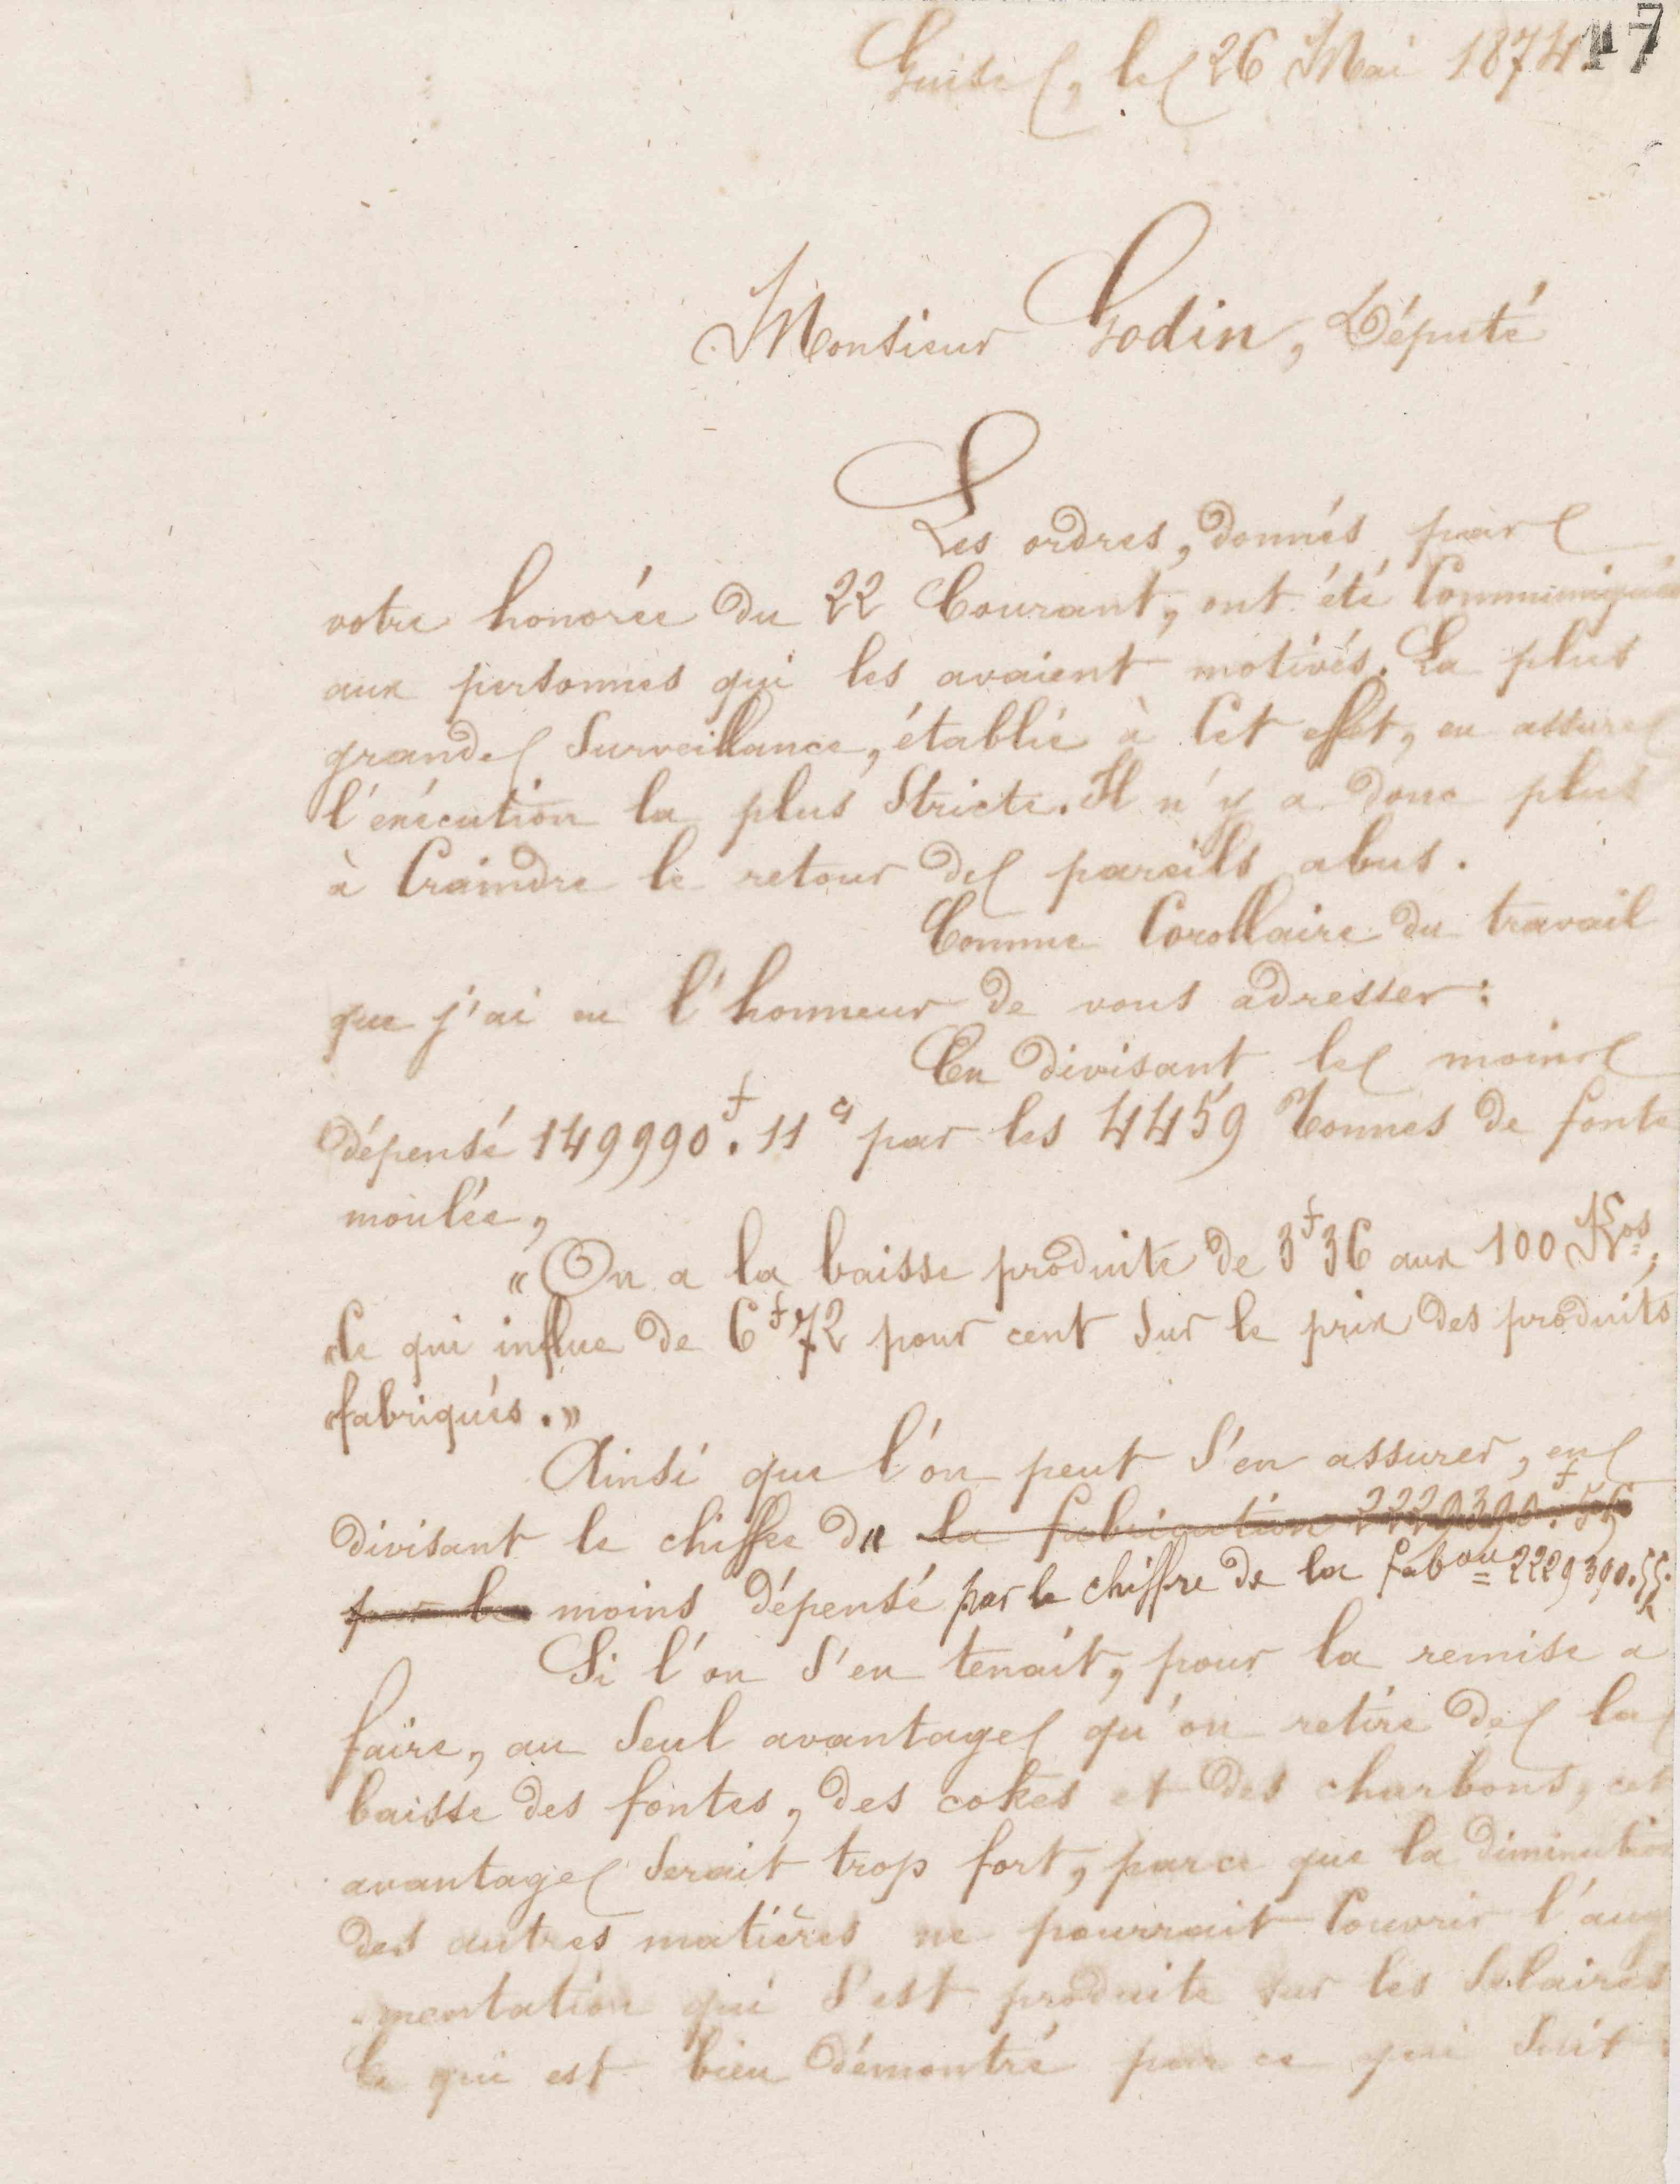 17
Guise, le 26 Mai 1874.
Monsieur Godin, Député
Les ordres, donnés par
votre honorée du 22 Courant, ont été Communiqués
aux personnes qui les avaient motivés. La plus
grande Surveillance, établie à Cet effet, en assure
l'exécution la plus Stricte. Il n'y a donc plus
à Craindre le retour de pareils abus.
Comme Corollaire du travail
que j'ai eu l'honneur de vous adresser:
En divisant le moins
dépensé 149990f.11c par les 4459 Tonnes de fonte
moulée,
«On a la baisse produite de 3f36 aux 100 Kos,
«Ce qui influe de 6f72 pour cent Sur le prix des produits
«fabriqués.»
Ainsi que l'on peut S'en assurer, en
divisant le chiffre du la fabrication 2229390f.55
par le moins dépensé par le chiffre de la fabon 2229390.55.
Si l'on S'en tenait, pour la remise a
faire, au Seul avantage qu'on retire de la
baisse des fontes, des cokes et des charbons, cet
avantage Serait trop fort, parce que la diminution
des autres matières ne pourrait Couvrir l'aug
mentation qui S'est produite sur les Salaires
Ce qui est bien démontré par ce qui Suit :